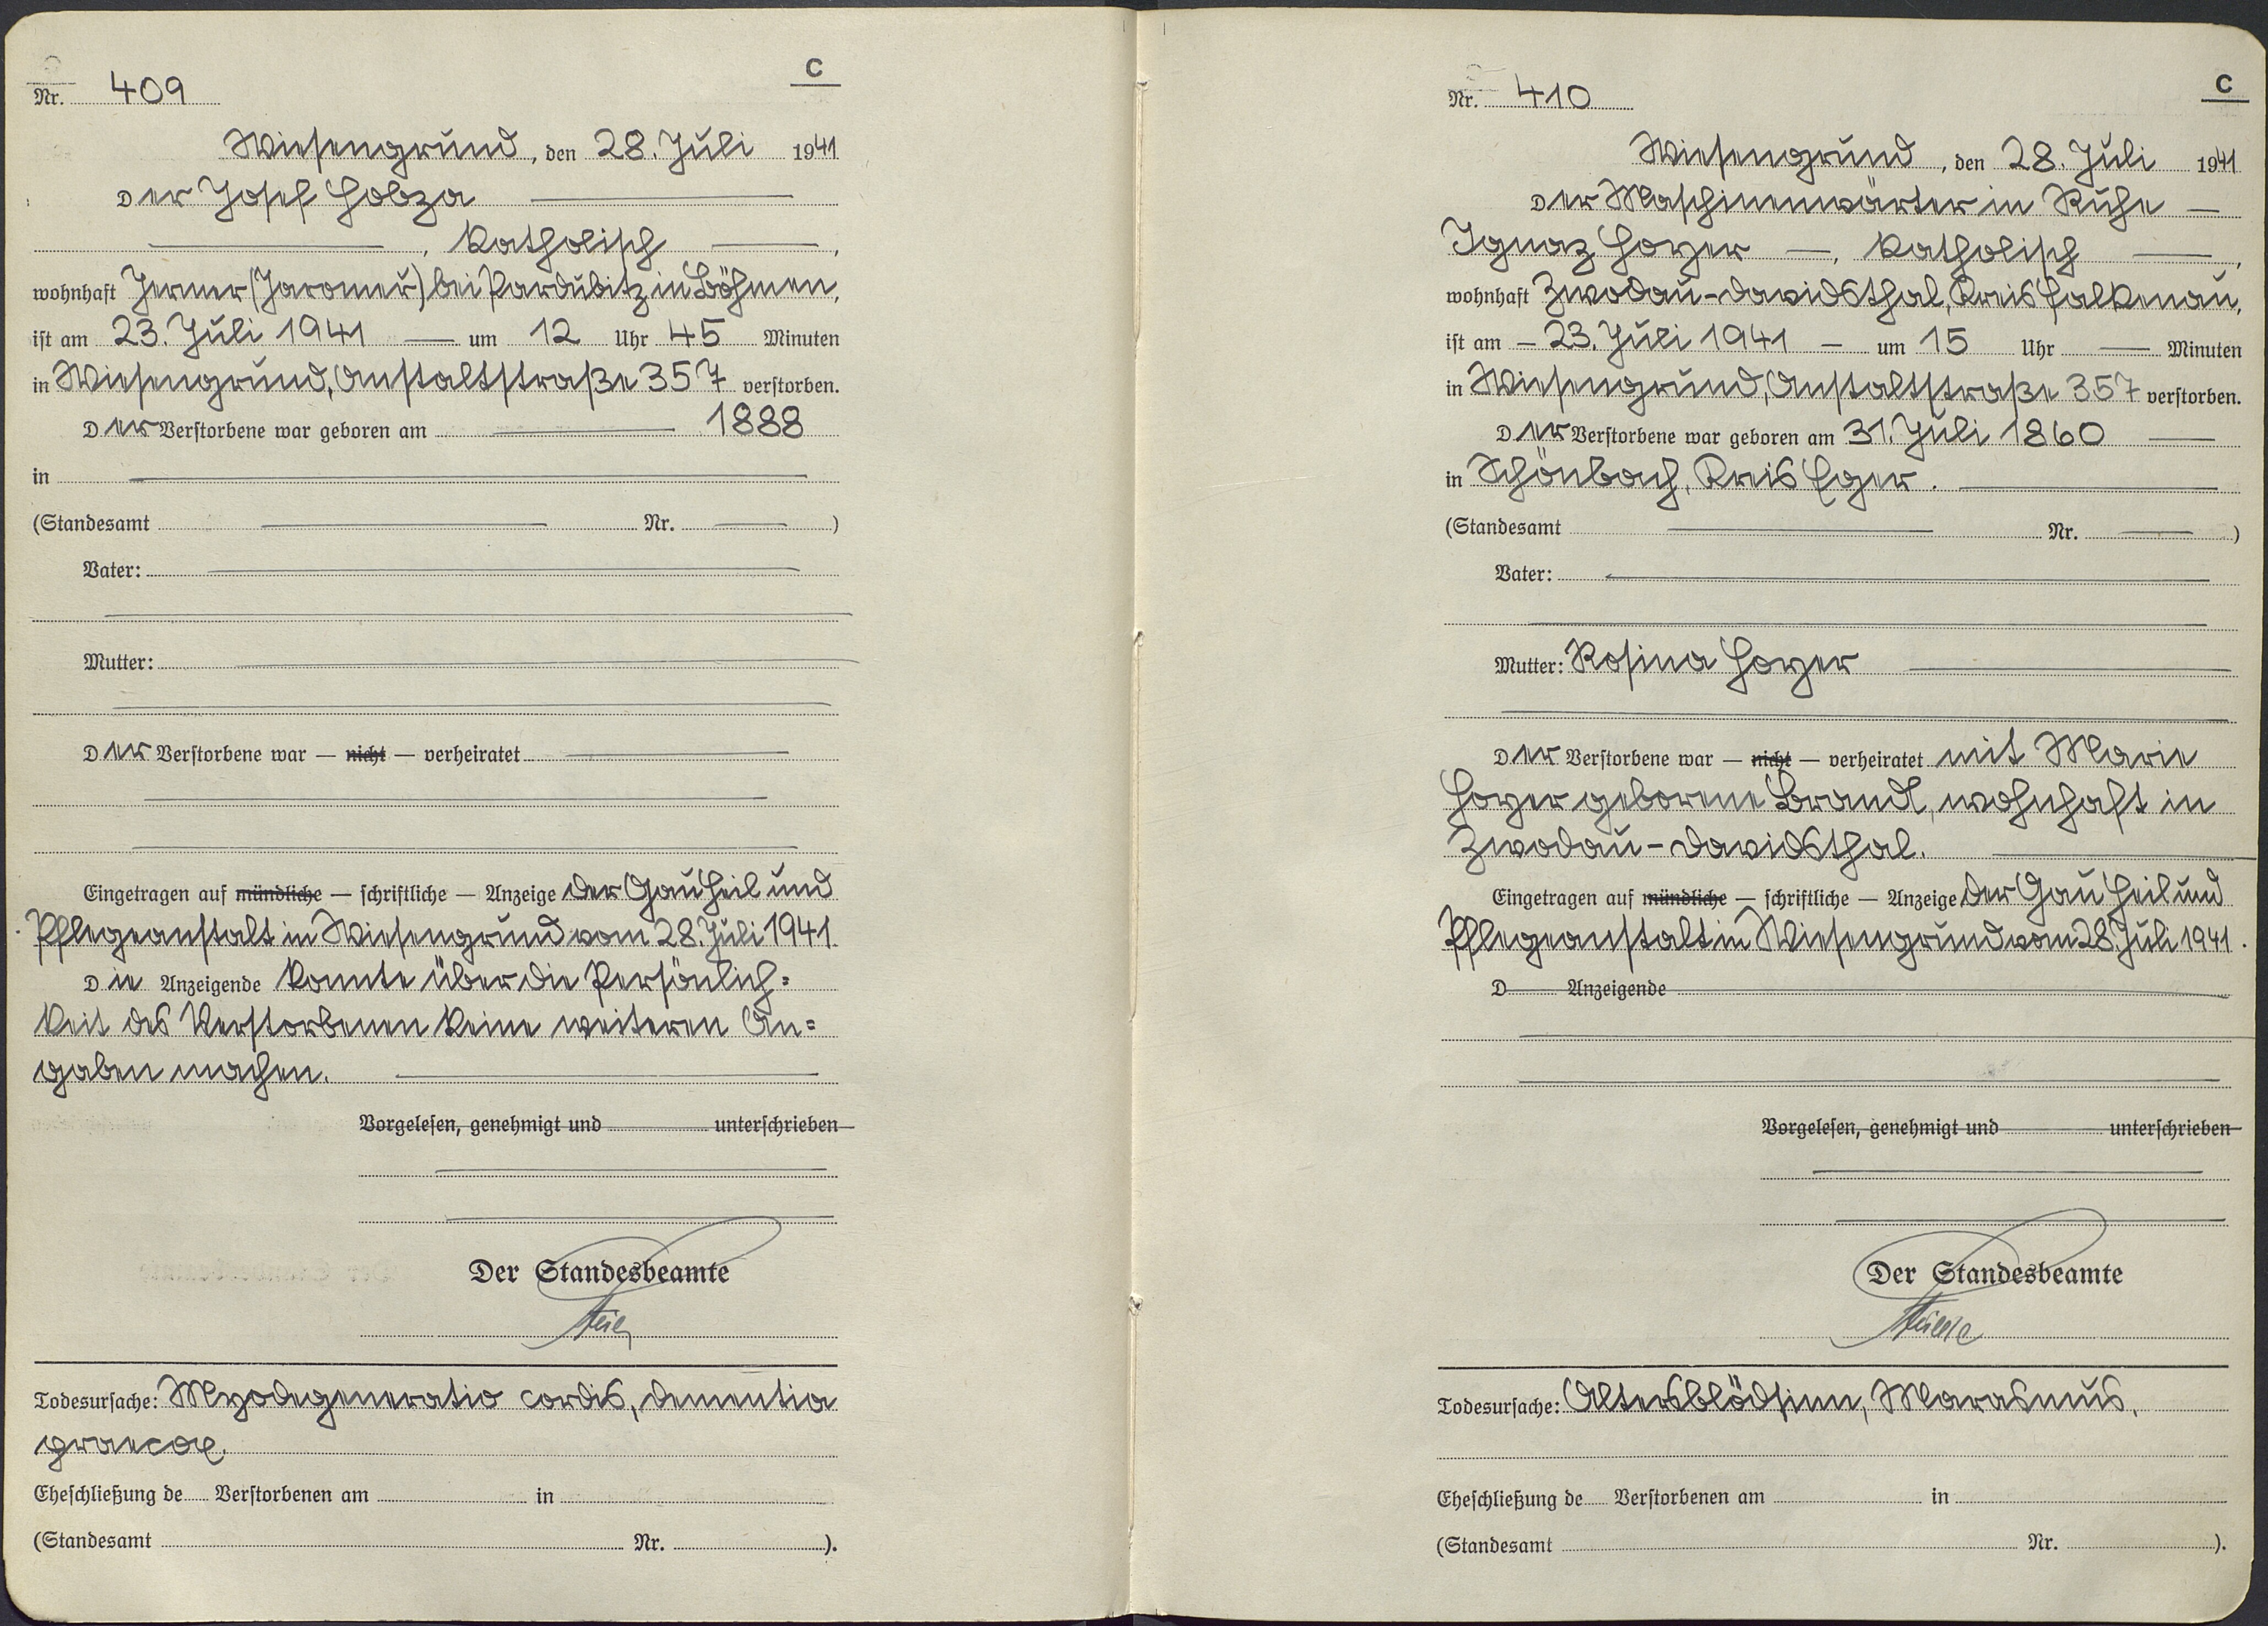 C
Nr. 409
Wiesengrund, den 28. Juli 1941
Der Josef Hobza
, katholisch ,
wohnhaft Jermer (Jaromeř) bei Pardubitz in Böhmen,
ist am 23. Juli 1941 — um 12 Uhr 45 Minuten
in Wiesengrund, Anstaltstraße 357 verstorben.
Der Verstorbene war geboren am — 1888
in —
(Standesamt — Nr. — )
Vater: —
Mutter: —
Der Verstorbene war — nicht — verheiratet —
Eingetragen auf mündliche — schriftliche — Anzeige der Gau Heil und
Pflegeanstalt in Wiesengrund vom 28. Juli 1941.
Die Anzeigende konnte über die Persönlich=
keit des Verstorbenen keine weiteren An=
gaben machen. —
Vorgelesen, genehmigt und unterschrieben
Der Standesbeamte
Todesursache: Myodegeneratio cordis, dementia
praecox.
Eheschließung de Verstorbenen am in
(Standesamt Nr. ).
C
Nr. 410
Wiesengrund, den 28. Juli 1941
Der Maschinenwärter in Ruhe —
Ignaz Hoyer —, katholisch — ,
wohnhaft Zwodau-Davidsthal, Kreis Falkenau,
ist am — 23. Juli 1941 — um 15 Uhr — Minuten
in Wiesengrund, Anstaltstraße 357 verstorben.
Der Verstorbene war geboren am 31. Juli 1860 —
in Schönbach, Kreis Eger. —
(Standesamt — Nr. — )
Vater: —
Mutter: Rosina Hoyer —
Der Verstorbene war — nicht — verheiratet mit Marie
Hoyer geborene Brandl, wohnhaft in
Zwodau-Davidsthal. —
Eingetragen auf mündliche — schriftliche — Anzeige der Gau Heil und
Pflegeanstalt in Wiesengrund vom 28. Juli 1941.
D Anzeigende
Vorgelesen, genehmigt und unterschrieben
Der Standesbeamte
Todesursache: Altersblödsinn, Marasmus.
Eheschließung de Verstorbenen am in
(Standesamt Nr. ).